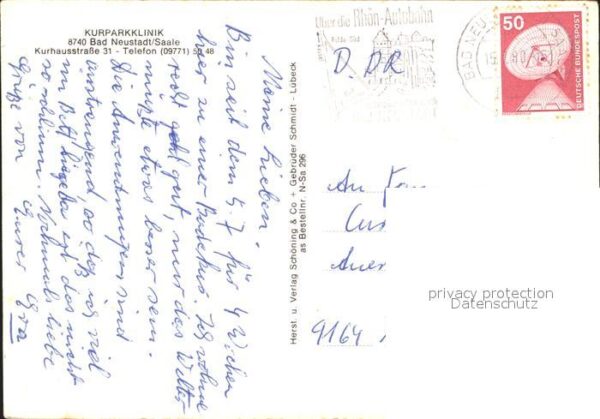 KURPARKKLINIK
8740 Bad Neustadt/Saale
Kurhausstraße 31 - Telefon (09771) 50 48
Meine Lieben!
Bin seit dem 5.7 für 4 Wochen
hier zu einer Badekur. Ich wohne
recht gut, nur das Wetter
müßte etwas besser sein.
Die Anwendungen sind
anstrengend so daß ich viel
im Bett liege
so schlimm. Nochmals liebe
Grüße von Eurer Eva
Herst. u. Verlag Schöning & Co + Gebrüder Schmidt - Lübeck
as Bestellnr. N-Sa 296
Über die Rhön-Autobahn
BAD NEU
50
DEUTSCHE BUNDESPOST
DDR
An
Auer
9164
privacy protection
Datenschutz